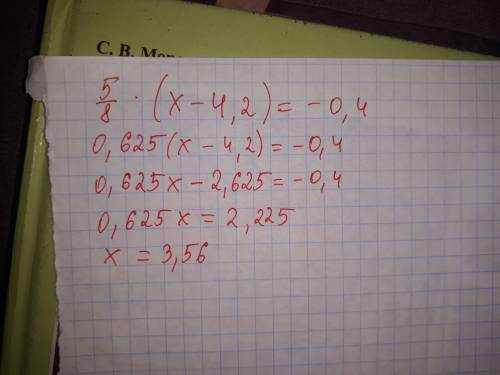 С. В.
5/8 · (x - 4,2) = - 0,4
0,625(x - 4,2) = -0,4
0,625x - 2,625 = -0,4
0,625x = 2,225
x = 3,56